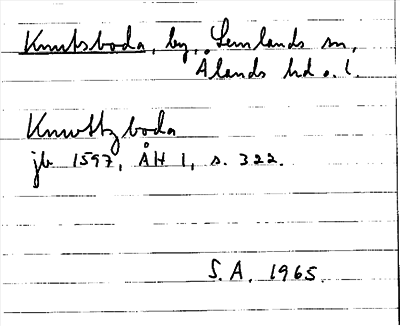 Knutsboda, by, Lemlands sn,
Ålands hd o. l.
Knwttzboda
jb 1597, ÅH 1, s. 322.
S.A. 1965.